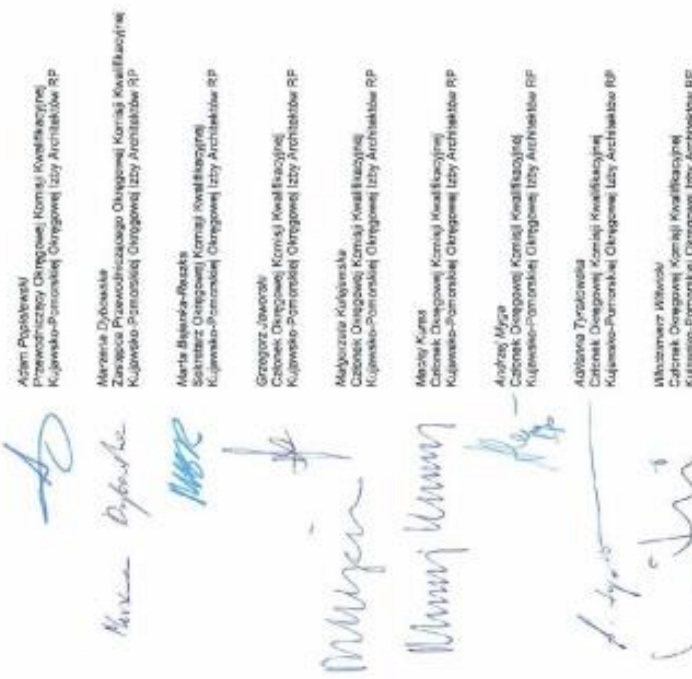 Adam Popielewski
Przewodniczący Okręgowej Komisji Kwalifikacyjnej
Kujawsko-Pomorskiej Okręgowej Izby Architektów RP
Marzena Dybowska
Zastępca Przewodniczącego Okręgowej Komisji Kwalifikacyjnej
Kujawsko-Pomorskiej Okręgowej Izby Architektów RP
Marta Bejenka-Reszka
Sekretarz Okręgowej Komisji Kwalifikacyjnej
Kujawsko-Pomorskiej Okręgowej Izby Architektów RP
Grzegorz Jaworski
Członek Okręgowej Komisji Kwalifikacyjnej
Kujawsko-Pomorskiej Okręgowej Izby Architektów RP
Małgorzata
Członek Okręgowej Komisji Kwalifikacyjnej
Kujawsko-Pomorskiej Okręgowej Izby Architektów RP
Maciej Kuras
Członek Okręgowej Komisji Kwalifikacyjnej
Kujawsko-Pomorskiej Okręgowej Izby Architektów RP
Andrzej Myga
Członek Okręgowej Komisji Kwalifikacyjnej
Kujawsko-Pomorskiej Okręgowej Izby Architektów RP
Adrianna Tyrakowska
Członek Okręgowej Komisji Kwalifikacyjnej
Kujawsko-Pomorskiej Okręgowej Izby Architektów RP
Włodzimierz Witwicki
Członek Okręgowej Komisji Kwalifikacyjnej
Kujawsko-Pomorskiej Okręgowej Izby Architektów RP